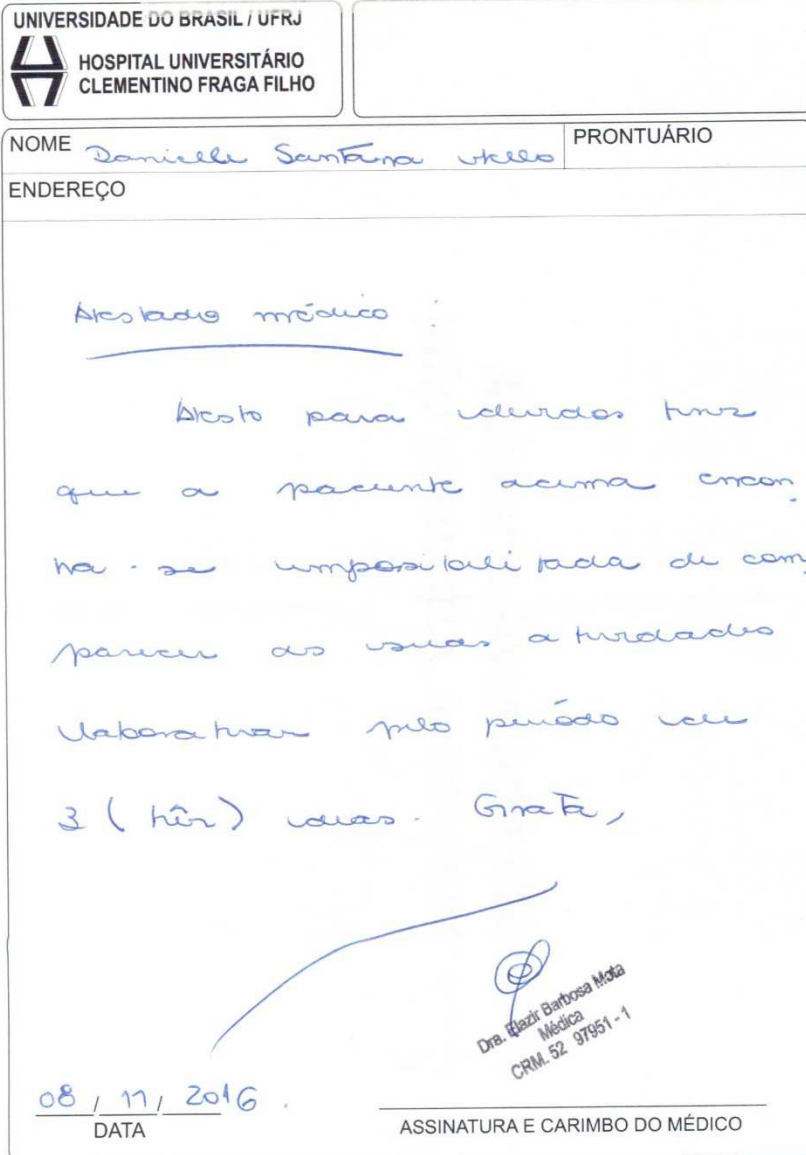 UNIVERSIDADE DO BRASIL / UFRJ
HOSPITAL UNIVERSITÁRIO
CLEMENTINO FRAGA FILHO
NOME Danielle Santana Mello
PRONTUÁRIO
ENDEREÇO
Atestado médico :
Atesto para devidos fins
que a paciente acima encon
tra - se impossibilitada de com
parecer as suas atividades
laborativas pelo período de
3 (três) dias. Grata,
Dra. Elazir Barbosa Mota
Médica
CRM. 52 97951 - 1
08 / 11 / 2016 .
DATA
ASSINATURA E CARIMBO DO MÉDICO